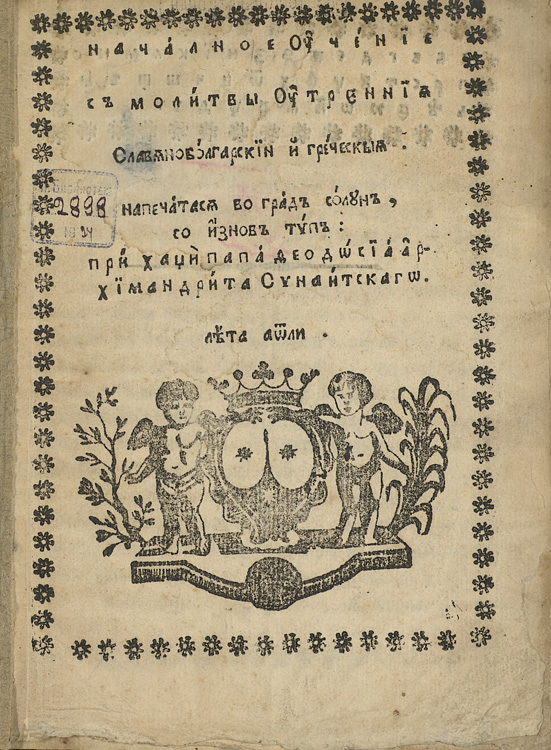 НАЧА́ЛНОЕ ОУ҆ЧЕ́НЇЕ
съ МОЛИ́ТВЫ ОУ҆́ТРЕННЇѦ
Славѧнобо́лгарскїи и҆ гре́ческыѧ :
напеча́тасѧ во гра́дъ со́лꙋнъ ,
со и҆́зновъ тѵ́пъ :
при́ хаџи̑ папа́ ѳеодѡ́сїа а҆р-
хїмандри́та Сѵнаи́тскагѡ .
лѣ́та аѿли .
2898